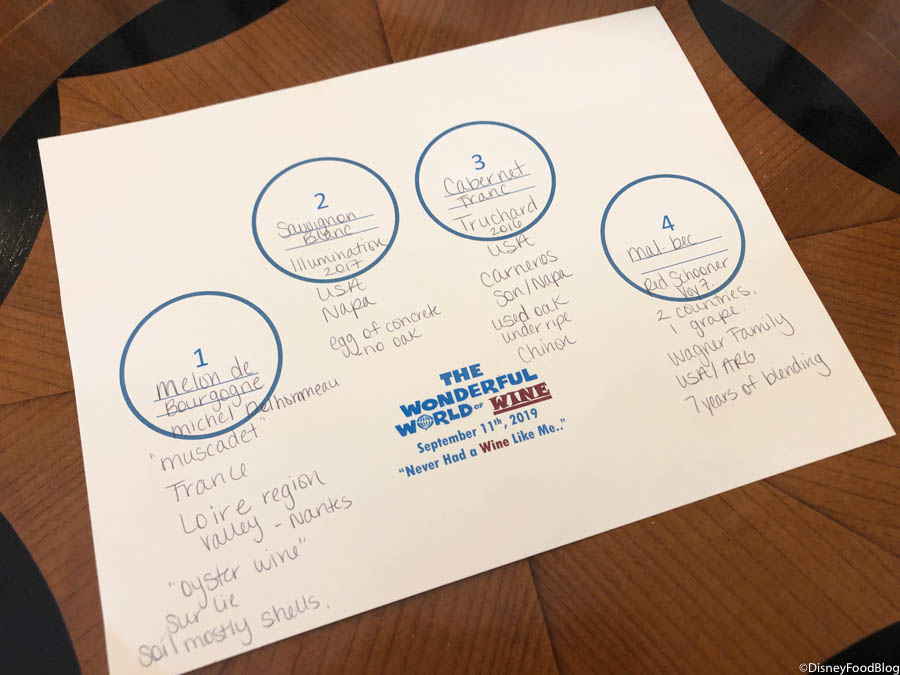 1
melon de
Bourgogne
michel Delhommeau
"muscadet"
France
Loire region
valley - Nantes
"oyster wine"
sur lie
soil mostly shells.
2
Sauvignon
Blanc
Illumination
2017
USA
Napa
egg of concrete
no oak
3
Cabernet
Franc
Truchard
2016
USA
Carneros
Son/Napa
used oak
under ripe
Chinon
4
mal-bec
Red Schooner
Voy 7.
2 countries,
1 grape.
Wagner Family
USA / ARG
7 years of blending
THE
WONDERFUL
WORLD OF WINE
September 11th, 2019
"Never Had a Wine Like Me.."
©DisneyFoodBlog